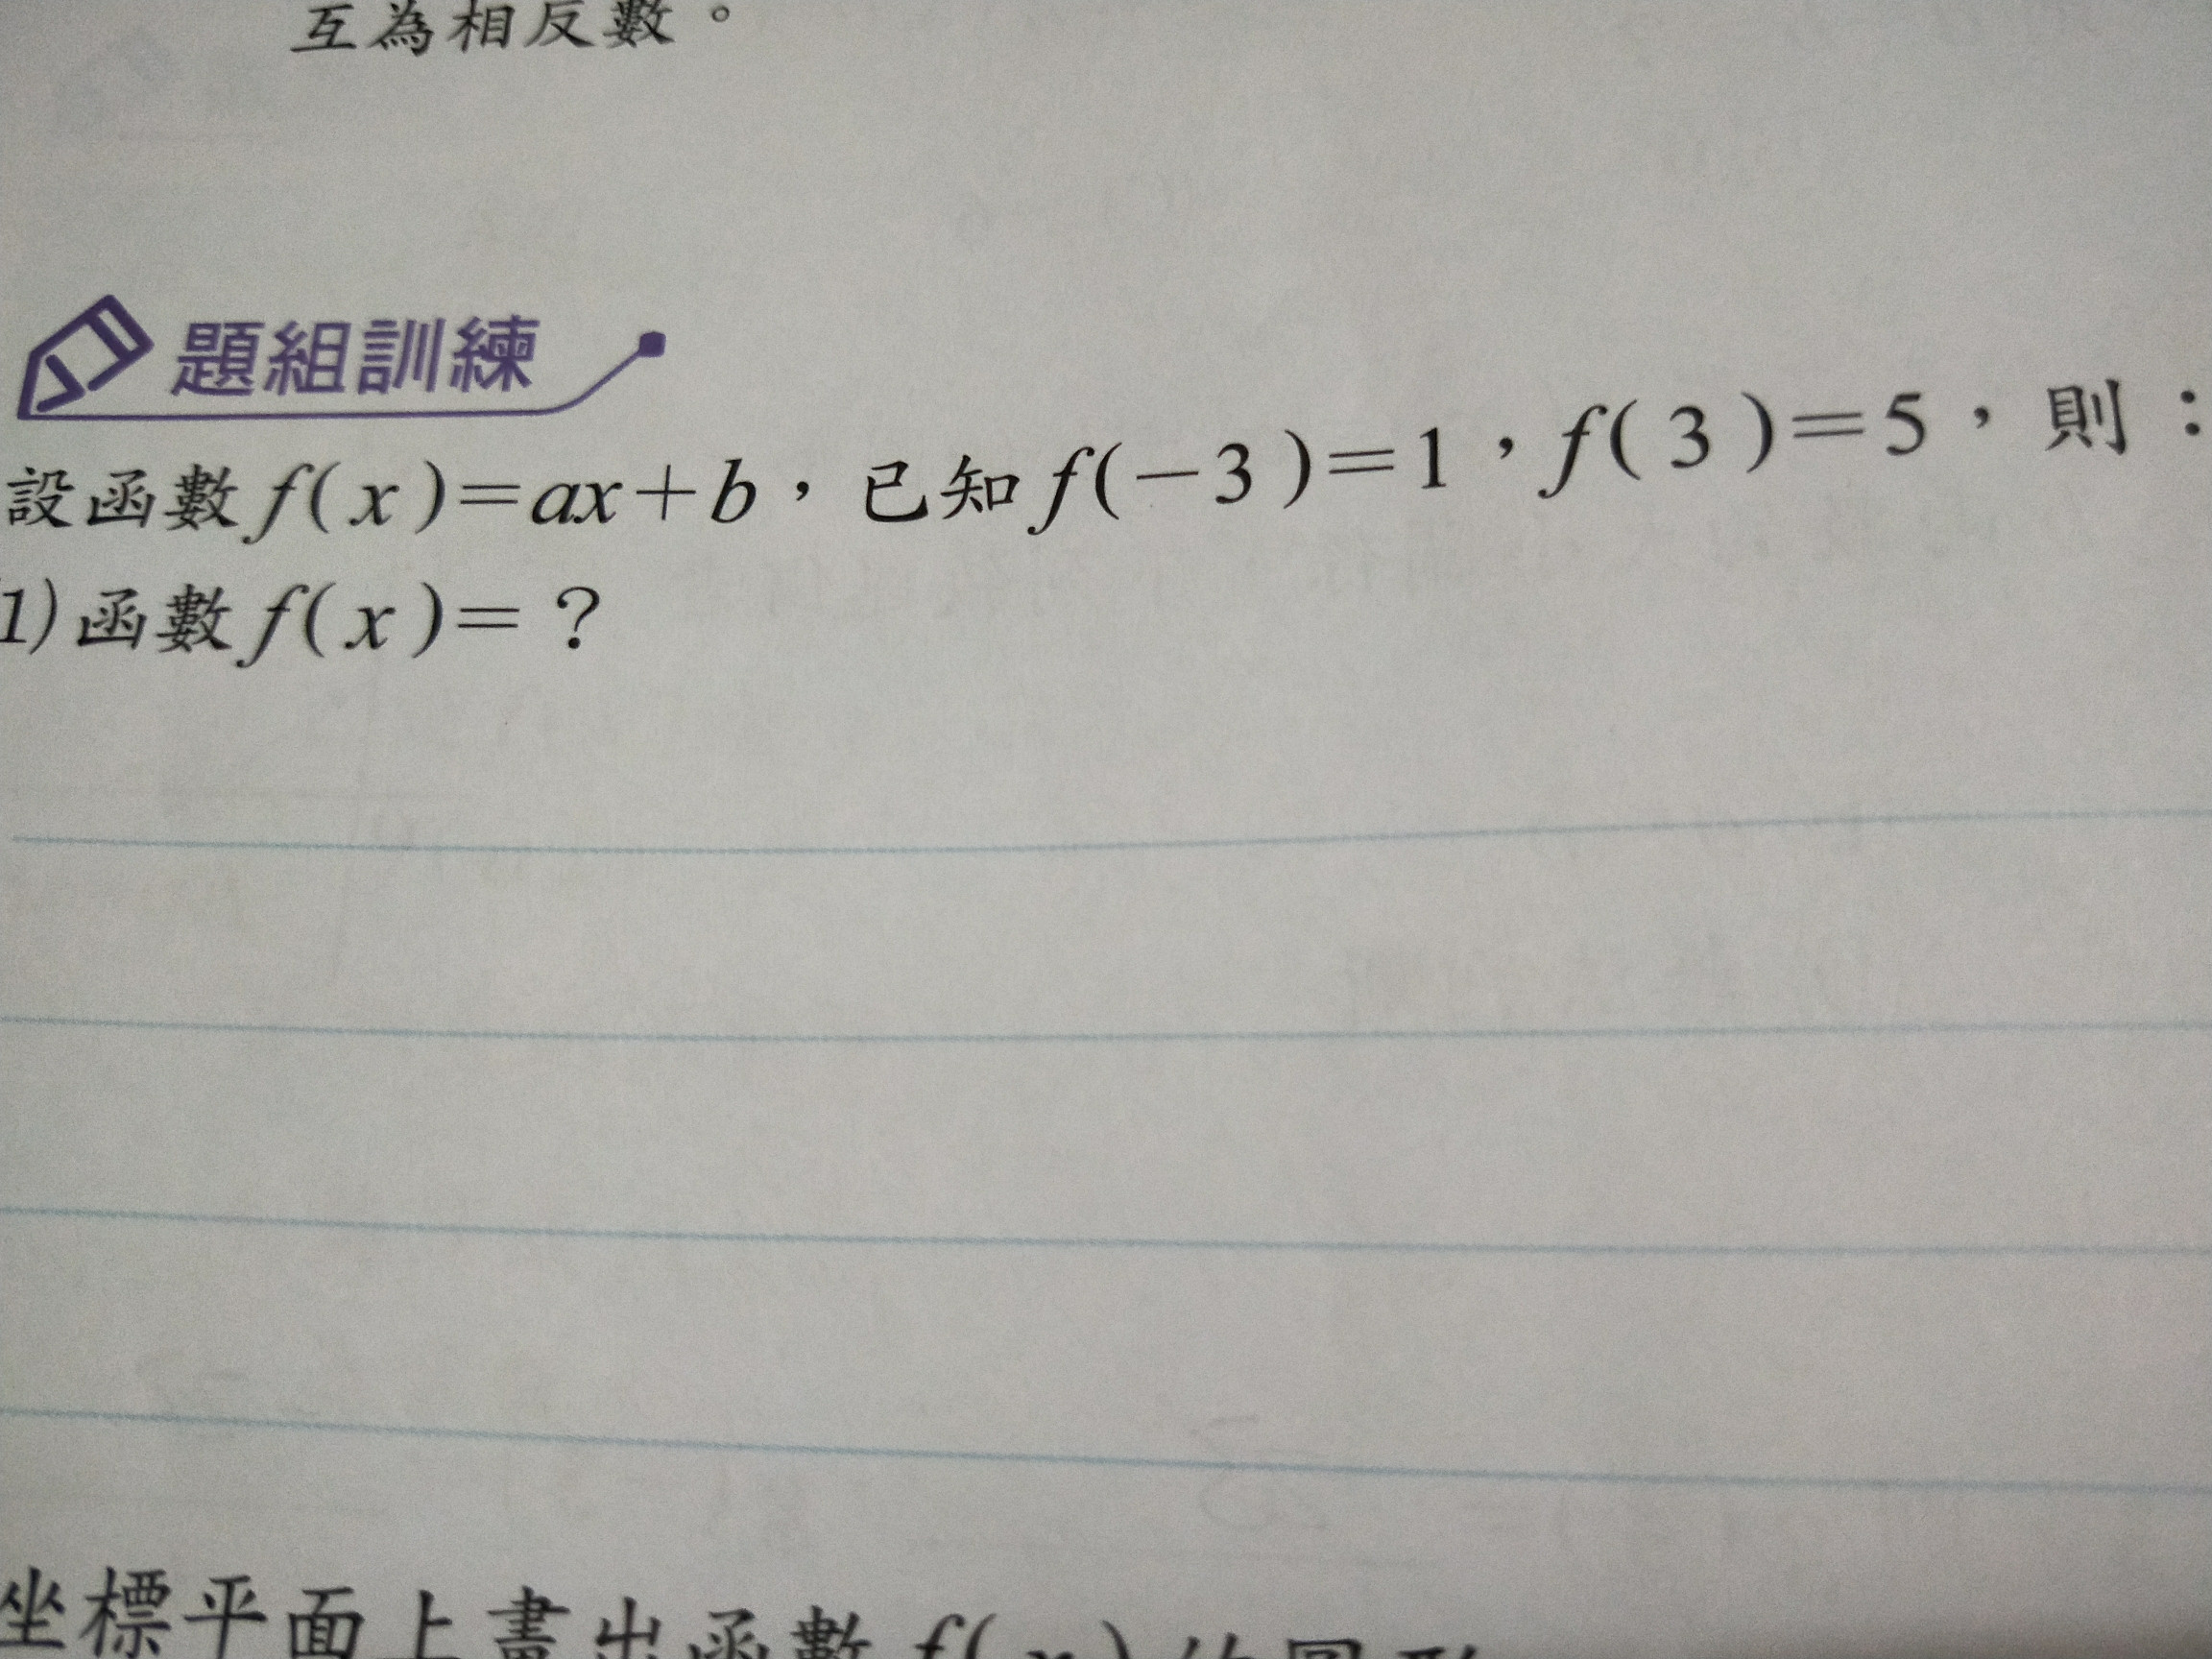 互為相反數。
題組訓練
設函數f(x)=ax+b，已知f(-3)=1，f(3)=5，則：
1)函數f(x)=？
坐標平面上畫出函數f(x)的圖形